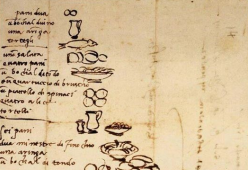 pani dua
u bochal di vino
una aringa
tortegli
una salata
quatro pani
u bochal di tondo
e u quartuccio di bruscho
u piattello di spinaci
quatro alice
tortelli
sei pani
dua minestre di finochio
una aringa
u bochal di tondo